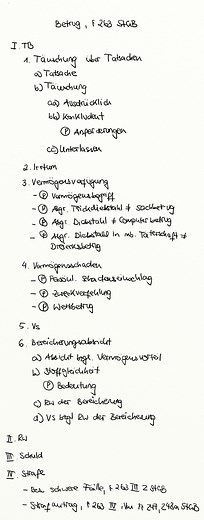 Betrug, § 263 StGB
I. TB
1. Täuschung über Tatsachen
a) Tatsache
b) Täuschung
aa) Ausdrücklich
bb) Konkludent
(P) Anforderungen
cc) Unterlassen
2. Irrtum
3. Vermögensverfügung
- (P) Vermögensbegriff
- (P) Abgr. Trickdiebstahl ≠ Sachbetrug
- (P) Abgr. Diebstahl ≠ Computerbetrug
- (P) Abgr. Diebstahl in mb. Täterschaft ≠
Dreiecksbetrug
4. Vermögensschaden
- (P) Persönl. Schadenseinschlag
- (P) Zweckverfehlung
- (P) Wettbetrug
5. Vs
6. Bereicherungsabsicht
a) Absicht bzgl. Vermögensvorteil
b) Stoffgleichheit
(P) Bedeutung
c) RW der Bereicherung
d) VS bzgl RW der Bereicherung
II. RW
III. Schuld
IV. Strafe
- Bes. schwere Fälle, § 263 III StGB
- Strafantrag, § 263 IV iVm §§ 247, 248a StGB